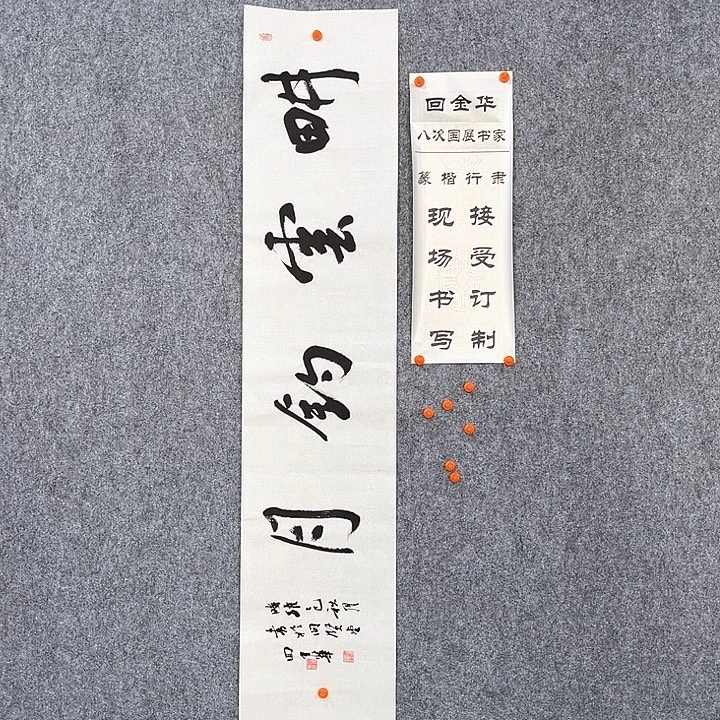 畊雲釣月
回金华
八次国展书家
篆楷行隶
现场书写
接受订制